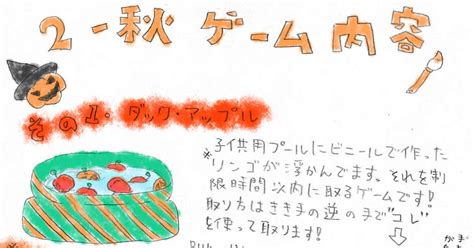 2-秋 ゲーム内容
その1・ダック・アップル
※子供用プールにビニールで作った
リンゴが浮かんでます。それを制
限時間以内に取るゲームです!
取り方はきき手の逆の手で"コレ"
を使って取ります!